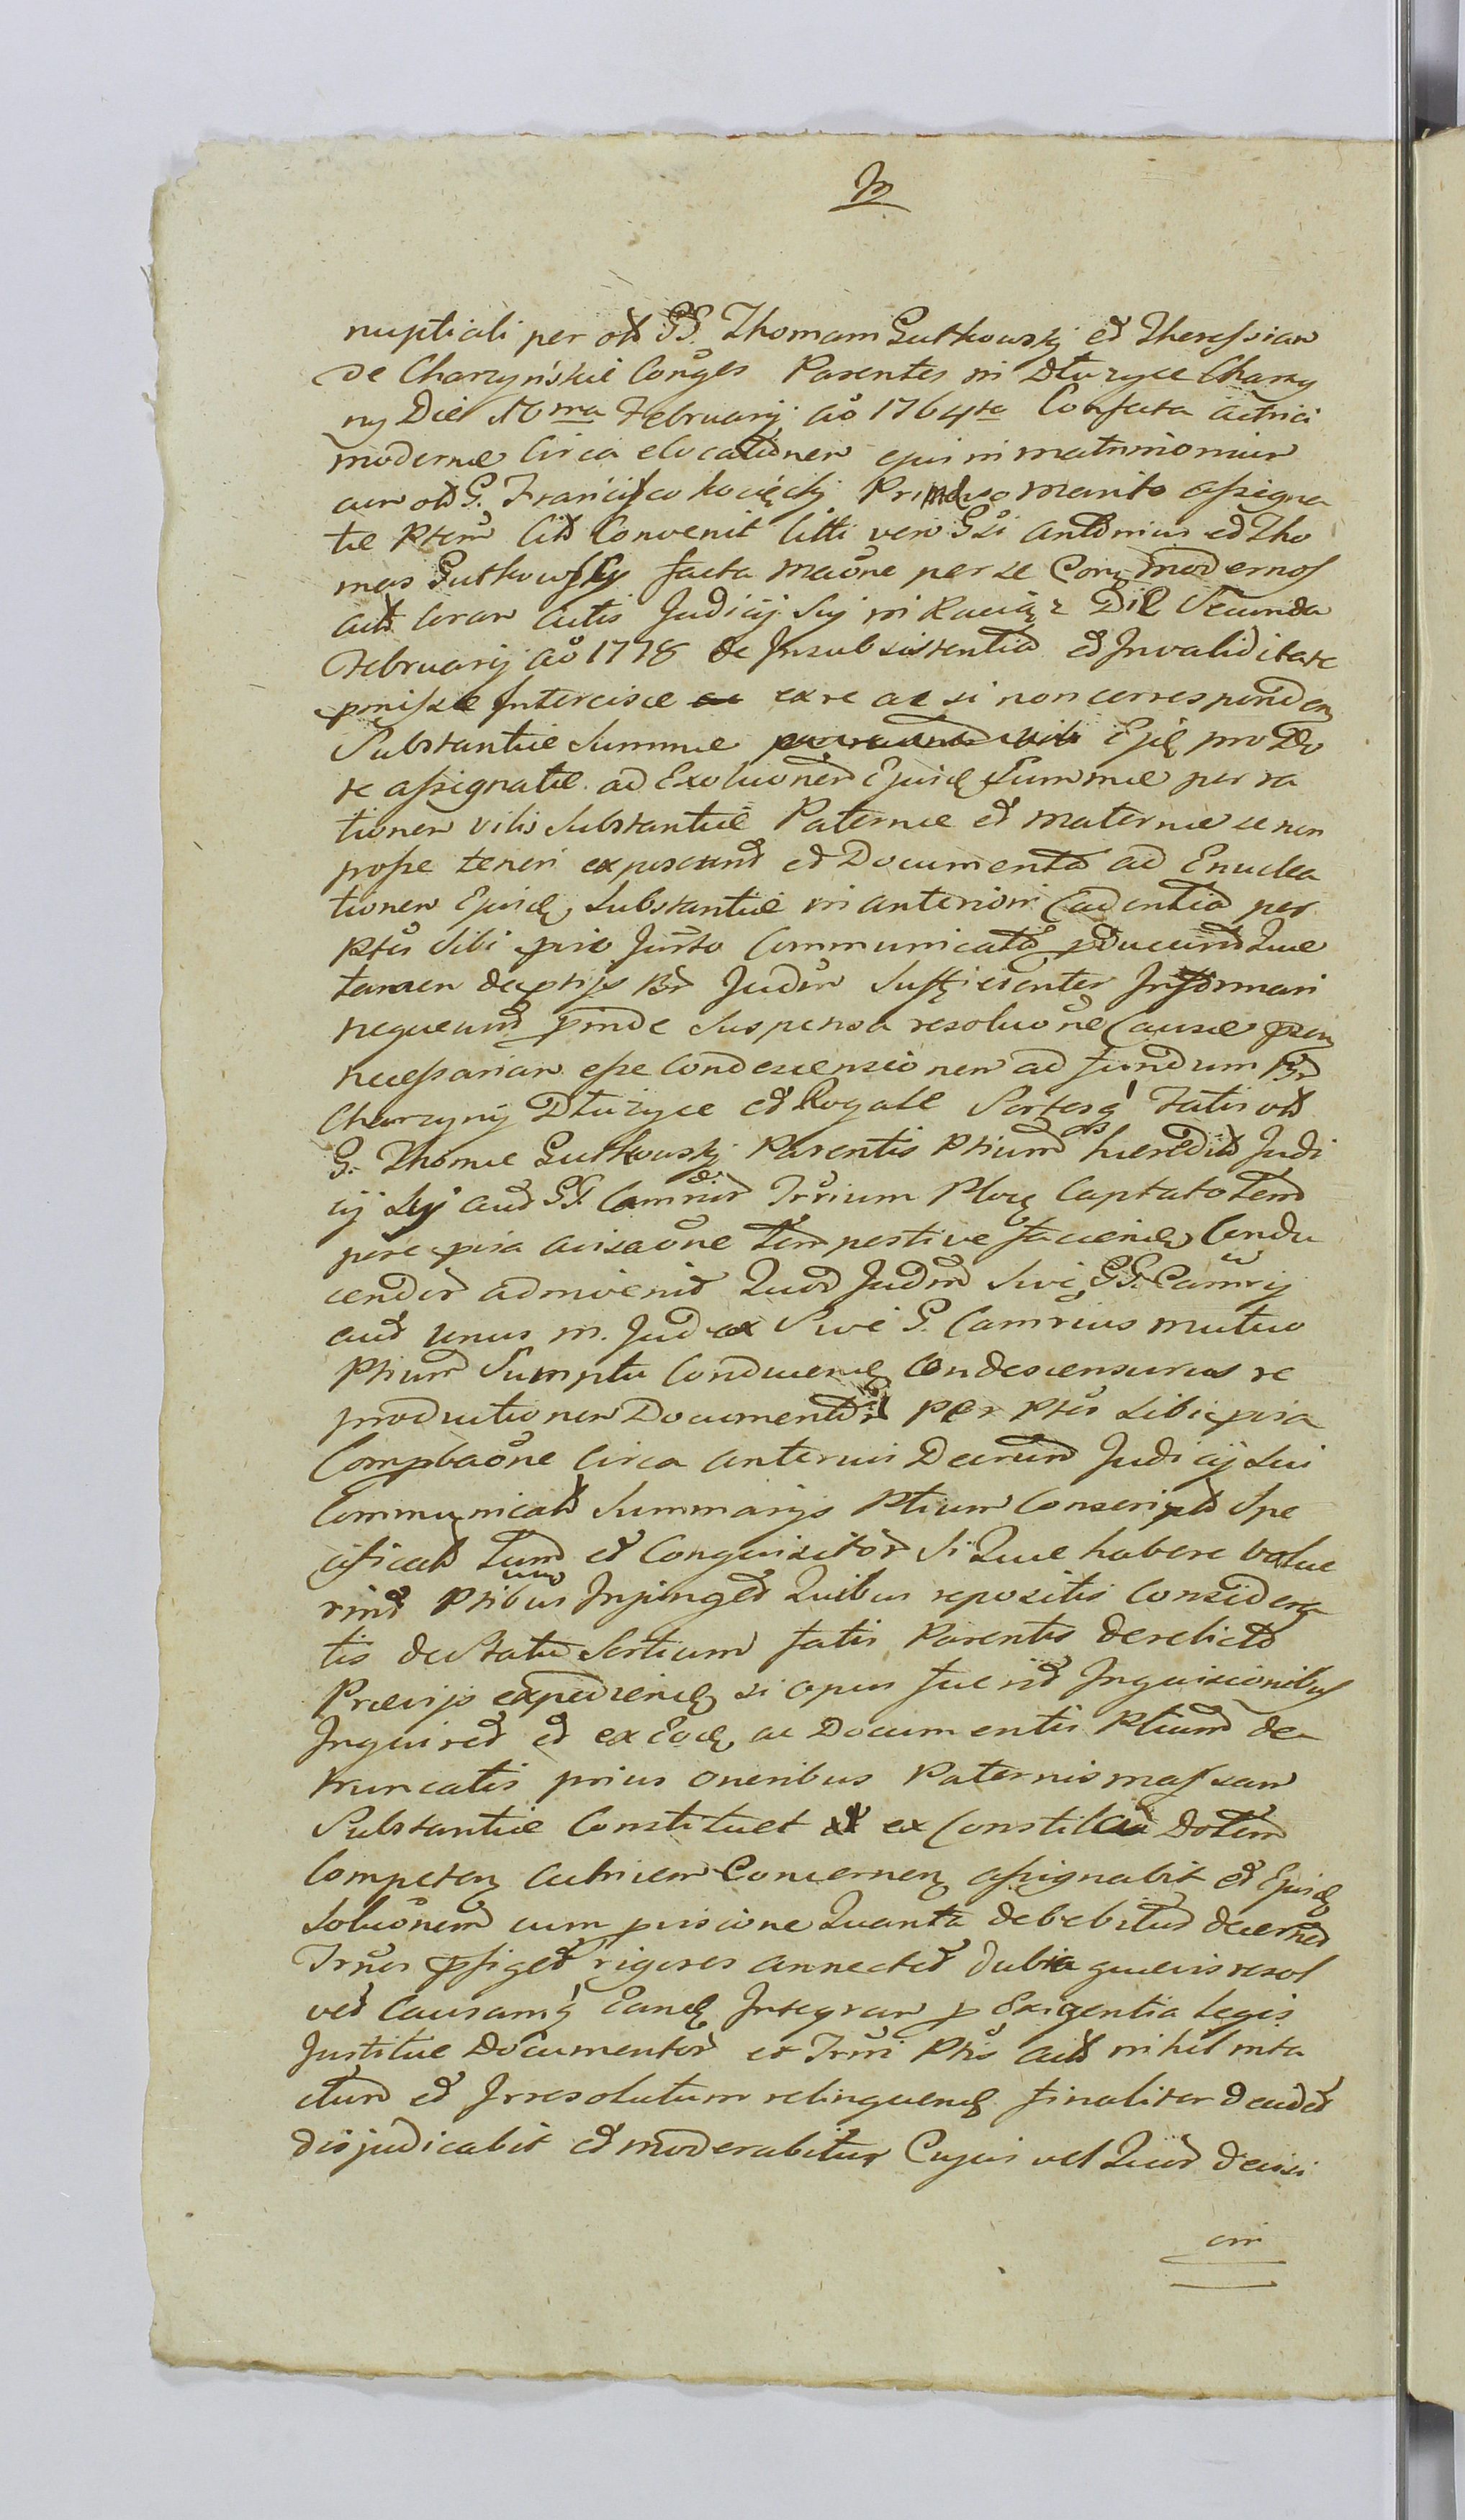 nuptiali per old GG. Thomam Gutkowskÿ et Theressiam
de Charzyńskie Conges Parentes in Dłużyce Charzy
ny Die 16ma Februarÿ ao 1764to Confecta Actrici
modernae Circa elocationem ejus in matrimonium
cum old G. Francisco Marito assigna
tae Ptem Citt Convenit Citti vero Gsi Antonius et Tho
mas Gutkowskÿ facta maone per se modernos
actt coram Actis Judicÿ Sui in Raciąż Die Secunda
Februarÿ ao 1778 de Insubsistentia et Invaliditate
pmissae Intercisae exre ac si non corresponden
Substantiae Summae Ejq pro Do
te assignatae ad Exolucionem Ejusd Summae per ra
tionem vilis Substantiae Paternae et maternae se non
posse teneri exposcunt et Documenta ad Enuclea
tionem Ejusd Substantiae in anteriori Cadentia per
Ptes Sibi pro Justo Communicata pducunt Quae
tamen Judm Sufficienter Informari
nequeunt pinde Suspensa resoluone Causae psen
necessariam esse Condescensionem ad fundum
Charzyny Dłużyce et Rogale Sortesq fatis old
G. Thomae Gutkowskÿ Parentis Ptium haeredit Judi
cÿ Sui aut GG. Camrior Trrium Ploc Captato Tem
pore pvia avisaone Tempestive faciend Condu
cendor advenit Quod Judm Sive GG. Camrij
aut unus m. Judex Sive G. Camrius mutuo
Ptium Sumptu Conducend Condescensurus re
productionem Documentor per Ptes Sibi pvia
Compbaone Circa anterius Decretum Judicÿ Sui
Communicatt Summarÿs Ptium Conscript Spe
cificatt Tum et Conquisitor Si Quae habere value
rint Ptibus Injunget Quibus repositis Considera
tis de Statu Sortium fatis Parentis derelict
Praevÿs expediend si opus fuerit Inquisicionibus
Inquiret et ex Eod ac Documentis Ptium de
truncatis prius oneribus Paternis massam
Substantiae Constituet ex Dotem
Competen Actricem Concernen assignabit et Ejusd
Soluonem cum pvisione Quanta debebitur decernet
Trnos pfiget rigores annectet dubia quaevis resol
vet Causamq Eand Integram p Exigentia legis
Justitiae Documentor et Trni Ptis actt nihil inta
ctum et Irresolutum relinquend finaliter decidet
disjudicabit et moderabitur Cujus vel Quor decisi